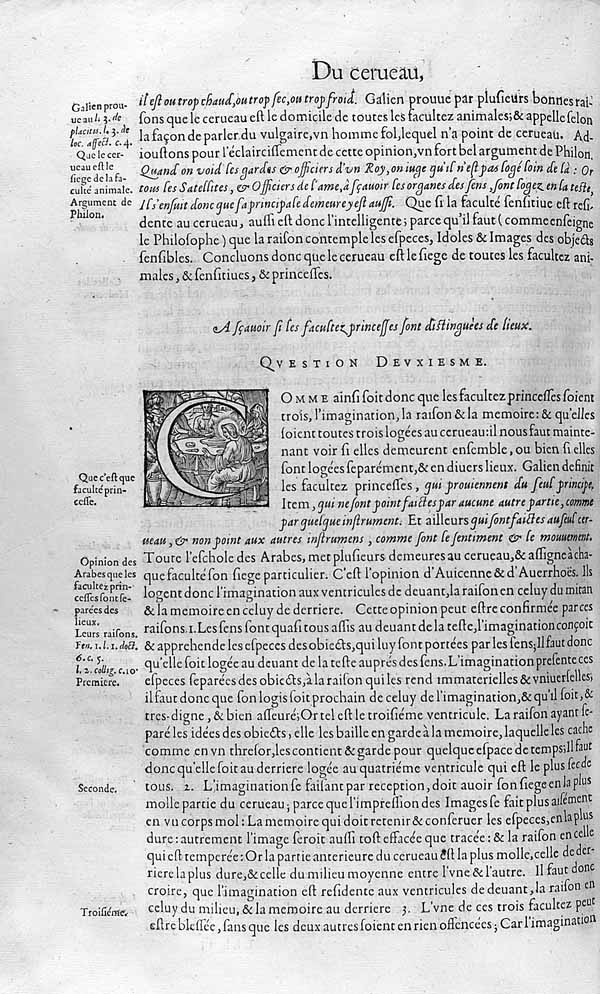 Du cerueau,
Galien prou-
ue au l. 3. de
placitis. l. 3. de
loc. affect. c. 4.
Que le cer-
ueau est le
siege de la fa-
culté animale.
Argument de
Philon.
il est ou trop chaud, ou trop sec, ou trop froid. Galien prouue par plusieurs bonnes rai-
sons que le cerueau est le domicile de toutes les facultez animales; & appelle selon
la façon de parler du vulgaire, vn homme fol, lequel n'a point de cerueau. Ad-
ioustons pour l'éclaircissement de cette opinion, vn fort bel argument de Philon.
Quand on void les gardes & officiers d'vn Roy, on iuge qu'il n'est pas logé loin de là: Or
tous les Satellites, & Officiers de l'ame, à sçauoir les organes des sens, sont logez en la teste,
Il s'ensuit donc que sa principale demeure y est aussi. Que si la faculté sensitiue est resi-
dente au cerueau, aussi est donc l'intelligente; parce qu'il faut (comme enseigne
le Philosophe) que la raison contemple les especes, Idoles & Images des obiects
sensibles. Concluons donc que le cerueau est le siege de toutes les facultez ani-
males, & sensitiues, & princesses.
A sçauoir si les facultez princesses sont distinguées de lieux.
QVESTION DEVXIESME.
COMME ainsi soit donc que les facultez princesses soient
trois, l'imagination, la raison & la memoire: & qu'elles
soient toutes trois logées au cerueau: il nous faut mainte-
nant voir si elles demeurent ensemble, ou bien si elles
sont logées separément, & en diuers lieux. Galien definit
les facultez princesses, qui prouiennent du seul principe,
Item, qui ne sont point faictes par aucune autre partie, comme
par quelque instrument. Et ailleurs qui sont faictes au seul cer-
ueau, & non point aux autres instrumens, comme sont le sentiment & le mouuement.
Toute l'eschole des Arabes, met plusieurs demeures au cerueau, & assigne à cha-
que faculté son siege particulier. C'est l'opinion d'Auicenne & d'Auerrhoës. Ils
logent donc l'imagination aux ventricules de deuant, la raison en celuy du mitan
& la memoire en celuy de derriere. Cette opinion peut estre confirmée par ces
raisons. 1. Les sens sont quasi tous assis au deuant de la teste, l'imagination conçoit
& apprehende les especes des obiects, qui luy sont portées par les sens; Il faut donc
qu'elle soit logée au deuant de la teste auprés des sens. L'imagination presente ces
especes separées des obiects, à la raison qui les rend immaterielles & vniuerselles;
il faut donc que son logis soit prochain de celuy de l'imagination, & qu'il soit, &
tres-digne, & bien asseuré; Or tel est le troisiéme ventricule. La raison ayant se-
paré les idées des obiects, elle les baille en garde à la memoire, laquelle les cache
comme en vn thresor, les contient & garde pour quelque espace de temps; Il faut
donc qu'elle soit au derriere logée au quatriéme ventricule qui est le plus sec de
tous. 2. L'imagination se faisant par reception, doit auoir son siege en la plus
molle partie du cerueau; parce que l'impression des Images se fait plus aisément
en vn corps mol: La memoire qui doit retenir & conseruer les especes, en la plus
dure: autrement l'image seroit aussi tost effacée que tracée: & la raison en celle
qui est temperée: Or la partie anterieure du cerueau est la plus molle, celle de der-
riere la plus dure, & celle du milieu moyenne entre l'vne & l'autre. Il faut donc
croire, que l'imagination est residente aux ventricules de deuant, la raison en
celuy du milieu, & la memoire au derriere 3. L'vne de ces trois facultez peut
estre blessée, sans que les deux autres soient en rien offencées; Car l'imagination
Que c'est que
faculté prin-
cesse.
Opinion des
Arabes que les
facultez prin-
cesses sont se-
parées des
lieux.
Leurs raisons.
Fen. 1. l. 1. doct.
6. c. 5.
l. 2. collig. c. 20.
Premiere.
Seconde.
Troisiéme.